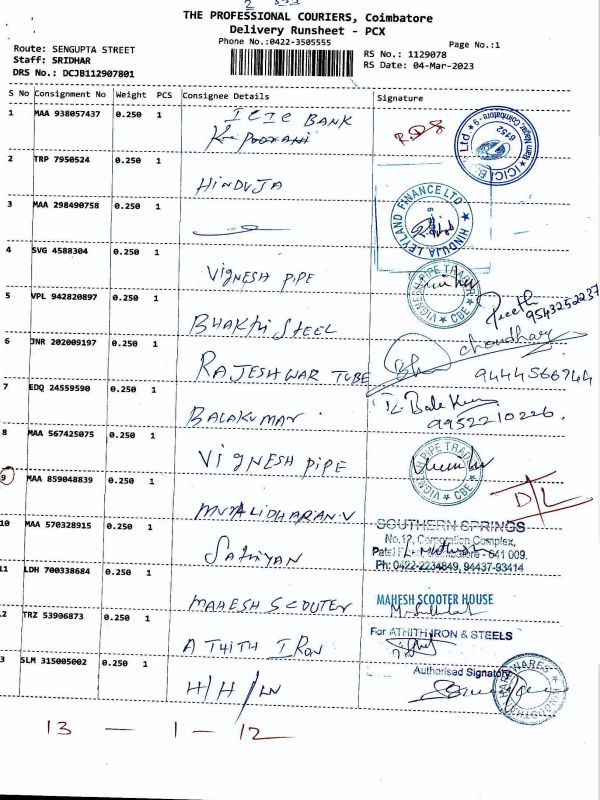 THE PROFESSIONAL COURIERS, Coimbatore
Delivery Runsheet - PCX
Phone No.:0422-3505555
Page No.:1
Route: SENGUPTA STREET
Staff: SRIDHAR
DRS No.: DCJB112907801
RS No.: 1129078
RS Date: 04-Mar-2023
S No Consignment No Weight PCS Consignee Details Signature
1 MAA 938057437 0.250 1 ICIC BANK
2 TRP 7950524 0.250 1 HINDUJA
HINDUJA LEYLAND FINANCE LTD
3 MAA 298490758 0.250 1
4 SVG 4588304 0.250 1 VIGNESH PIPE
VIGNESH PIPE TRADERS CBE
5 VPL 942820897 0.250 1 BHAKTHI STEEL
Preethi
9543252237
choudhary
9444566944
6 JNR 202009197 0.250 1 RAJESHWAR TUBE
7 EDQ 24559590 0.250 1 BALAKUMAR
R. Bala Kumar
9952210226.
8 MAA 567425075 0.250 1 VIGNESH PIPE
VIGNESH PIPE TRADERS CBE
9 MAA 859048839 0.250 1 MURALIDHARAN.V
D/L
10 MAA 570328915 0.250 1 SATHIYAN
SOUTHERN SPRINGS
No.12, Corporation Complex,
Coimbatore - 641 009.
Ph: 0422-2234849, 94437-93414
11 LDH 700338684 0.250 1 MAHESH SCOUTER
MAHESH SCOOTER HOUSE
2 TRZ 53906873 0.250 1 ATHITH IRON
For ATHITH IRON & STEELS
Authorised Signatory
3 SLM 315005002 0.250 1 H/H/LN
13 — 1 — 12